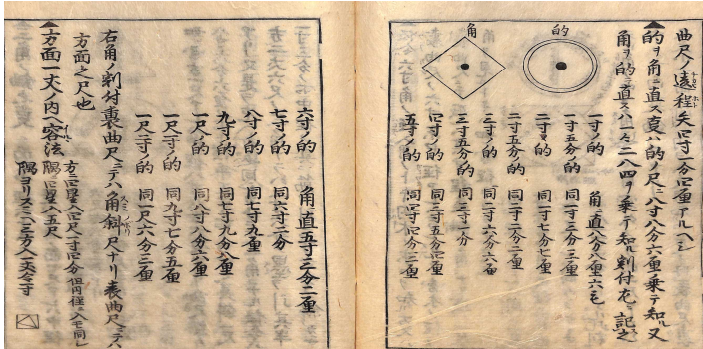 曲尺ノ遠程矢四寸一分四厘アルヘシ
▲的ヲ角ニ直ス支ハ的ノ尺ニ八寸八分六厘ヲ乗テ知ル又
角ヲ的ニ直スハ一々二八四ヲ乗テ知ル割付左ニ記之
的
角
一寸ノ的 角ニ直八分八厘六毛
一寸五分的 同一寸三分三厘
二寸ノ的 同一寸七分七厘
二寸五分的 同二寸二分二厘
三寸ノ的 同二寸六分六厘
三寸五分的 同三寸一分
四寸ノ的 同三寸五分五厘
五寸ノ的 同四寸四分三厘
六寸ノ的 角ニ直五寸三分二厘
七寸ノ的 同六寸二分
八寸ノ的 同七寸九厘
九寸ノ的 同七寸九分八厘
一尺ノ的 同八寸八分六厘
一尺一寸ノ的 同九寸七分五厘
一尺二寸ノ的 同一尺六分三厘
右角ノ割付裏曲尺ニテハ角斜尺ナリ表曲尺ニテハ
方面之尺也
▲方面一丈ノ内ヘ容法
方ニ四星ハ四尺一寸四分 但円径ニ入モ同し
隅ニ四星ハ五尺
隅ヨリスミヘ三方ハ一丈三寸